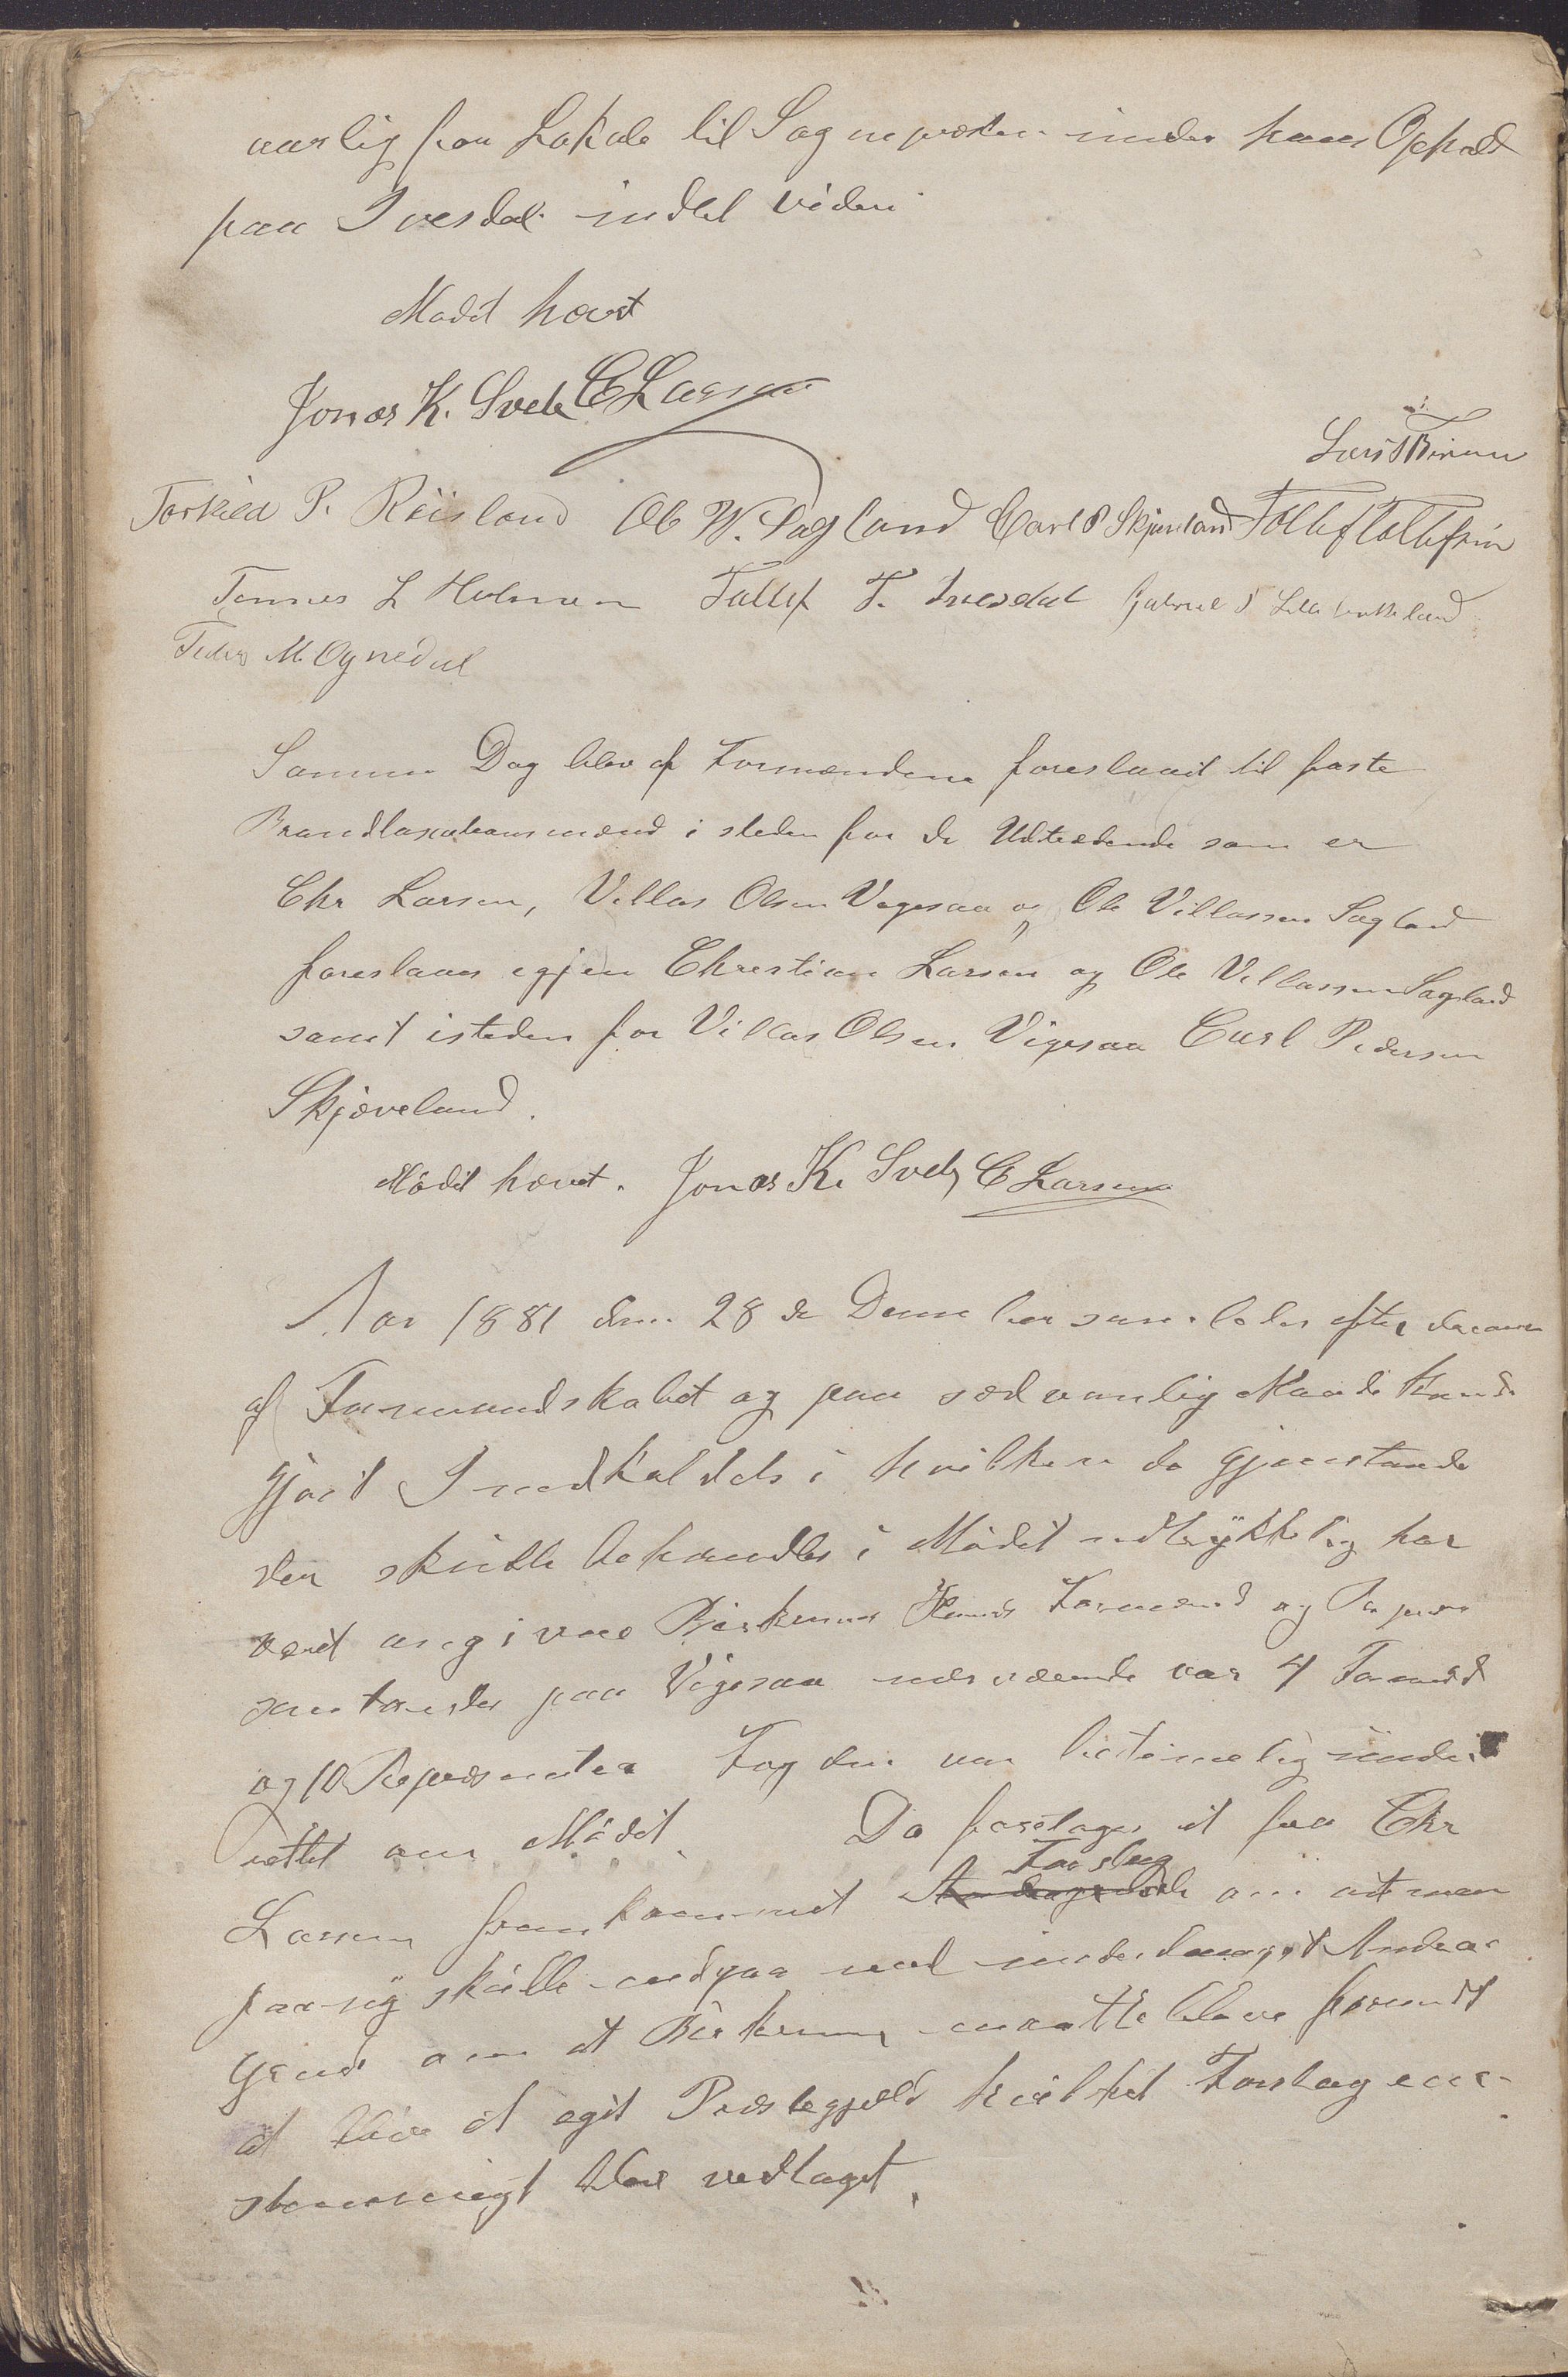 aarlig for Lokale til Sognepresten under hans Ophold
paa Ivesdal indtil videre
Mødet hævet
Jonas K. Svele C Larsen
Torkild P. Røisland Ole W. Sagland Carl P Skjæveland Tollef Tollefsen
Tønnes L Holmen Tollef T. Ivesdal Gabriel
Peder M. Ognedal
Samme Dag blev af Formændene foreslaaet til faste
Brandtaxationsmænd i steden for de Udtrædende som er
Chr Larsen, Villas Olsen Vigesaa og Ole Villassen Sagland
foreslaaes igjen Christian Larsen og Ole Villassen Sagland
samt isteden for Villas Olsen Vigesaa Carl Pedersen
Skjæveland.
Mødet hævet. Jonas K. Svele C Larsen
Aar 1881 den 28 de December samledes efter
af Formandskabet og paa sædvanlig Maade kund
gjort Indkaldelse i hvilken de gjenstande
der skulle behandles i Mødet udtrykkelig har
været angivne Bierkrems Herreds Formænd og Repræ
sentanter paa Vigesaa nærværende var 4 Formænd
og 10 Repræsenter Fogden var betimelig under
rettet om Mødet. Da foretages et fra Chr
Forslag
Larsen fremkommet om at man
paa ny skulle indgaa med underdanigst Andra
gende om at Bierkrem maatte blive forundt
at blive et eget Præstegjæld hvilket Forslag een-
stemmigt blev vedtaget.